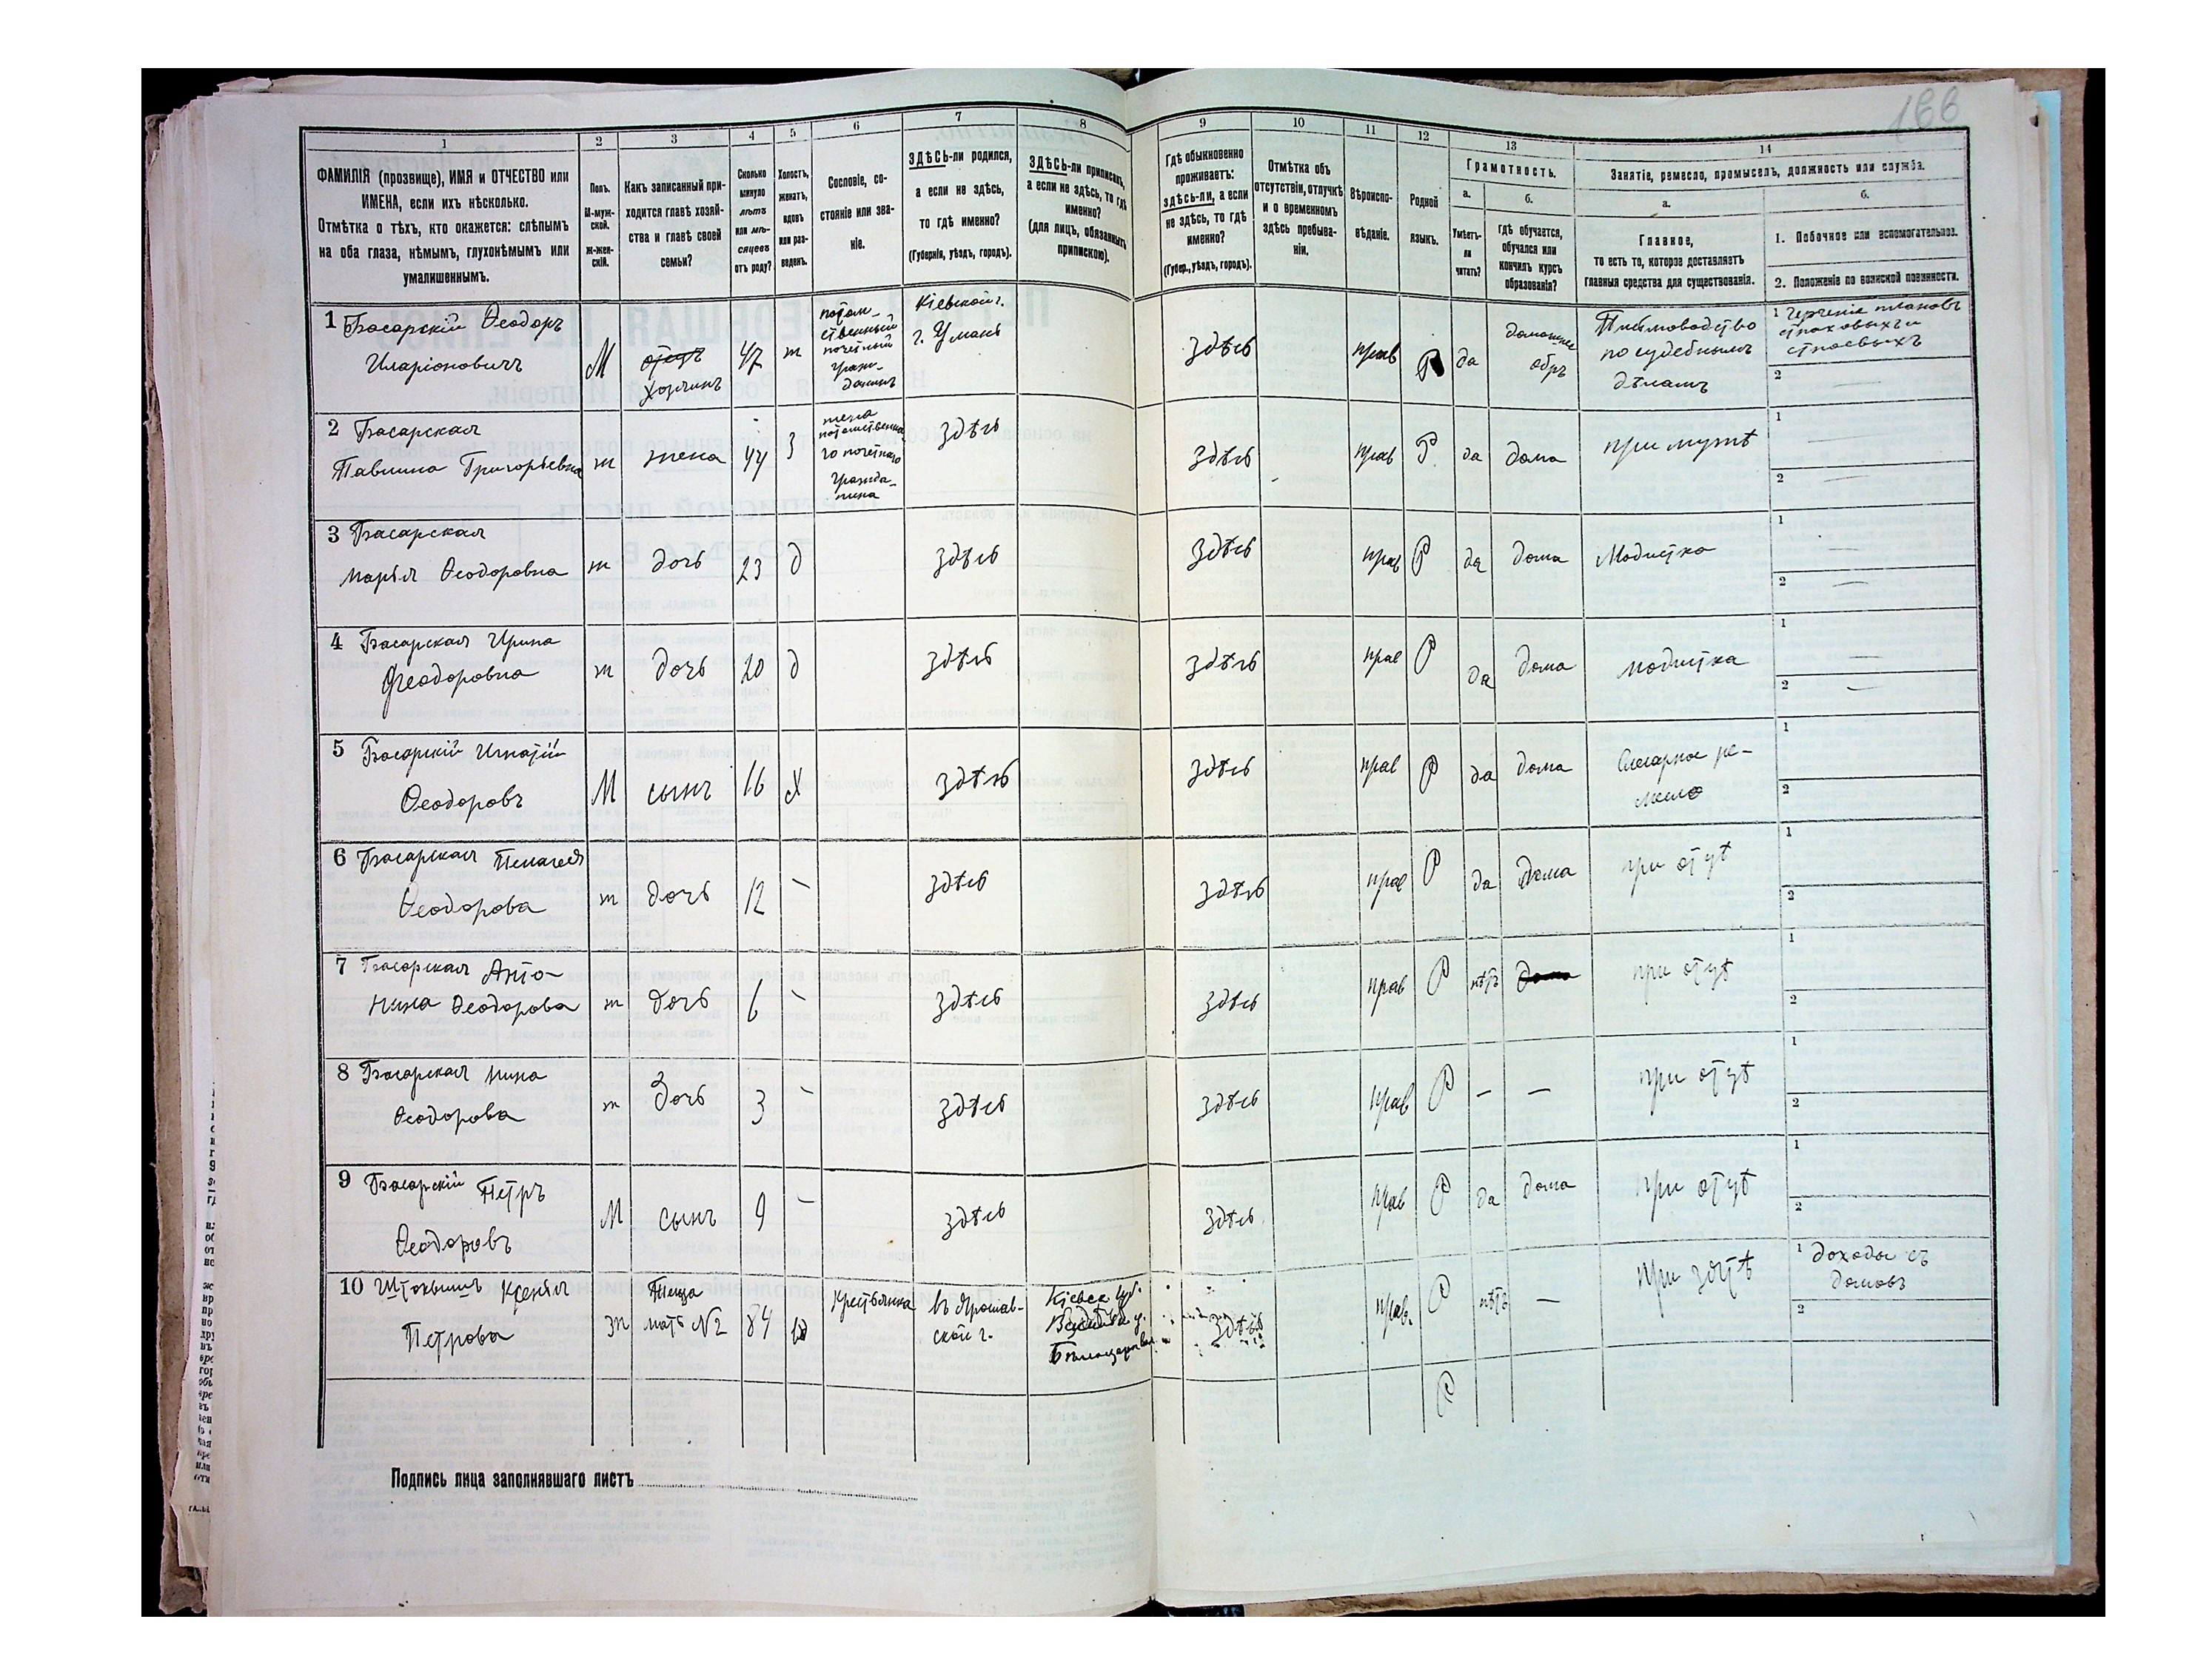 166
1 2 3 4 5 6 7 8 9 10 11 12 13 14
ФАМИЛІЯ (прозвище), ИМЯ и ОТЧЕСТВО или
ИМЕНА, если ихъ нѣсколько.
Отмѣтка о тѣхъ, кто окажется: слѣпымъ
на оба глаза, нѣмымъ, глухонѣмымъ или
умалишеннымъ.
Полъ.
М-муж-
ской.
Ж-жен-
скій.
Какъ записанный при-
ходится главѣ хозяй-
ства и главѣ своей
семьи?
Сколько
минуло
лѣтъ
или мѣ-
сяцевъ
отъ роду?
Холостъ,
женатъ,
вдовъ
или раз-
веденъ.
Сословіе, со-
стояніе или зва-
ніе.
ЗДѢСЬ-ли родился,
а если не здѣсь,
то гдѣ именно?
(Губернія, уѣздъ, городъ).
ЗДѢСЬ-ли приписанъ,
а если не здѣсь, то гдѣ
именно?
(для лицъ, обязанныхъ
припискою).
Гдѣ обыкновенно
проживаетъ:
здѣсь-ли, а если
не здѣсь, то гдѣ
именно?
(Губер., уѣздъ, городъ).
Отмѣтка объ
отсутствіи, отлучкѣ
и о временномъ
здѣсь пребыва-
ніи.
Вѣроиспо-
вѣданіе.
Родной
языкъ.
Грамотность.
а.
Умѣетъ-
ли
читать?
б.
Гдѣ обучается,
обучался или
кончилъ курсъ
образованія?
Занятіе, ремесло, промыселъ, должность или служба.
а.
Главное,
то есть то, которое доставляетъ
главныя средства для существованія.
б.
1. Побочное или вспомогательное.
2. Положеніе по воинской повинности.
1 Басарскій Ѳеодоръ
Иларіоновичъ
М
отецъ
хозяинъ
47
ж
потом-
ственный
почетный
граж-
данинъ
Кіевской г.
г. Умань
здѣсь
прав
Р
да
домашнее
обр
Письмоводство
по судебнымъ
дѣламъ
1 Черченіе плановъ
страховыхъ и
строевыхъ
2 —
2 Басарская
Павлина Григорьевна
ж
жена
44
З
жена
потомственна-
го почетнаго
гражда-
нина
здѣсь
здѣсь
прав
Р
да
дома
при мужѣ
1 —
2 —
3 Басарская
Марія Ѳеодоровна
ж
дочь
23
д
здѣсь
здѣсь
прав
Р
да
дома
Модистка
1 —
2 —
4 Басарская Ирина
Ѳеодоровна
ж
дочь
20
д
здѣсь
здѣсь
прав
Р
да
дома
модистка
1 —
2 —
5 Басарскій Игнатій
Ѳеодоровъ
М
сынъ
16
Х
здѣсь
здѣсь
прав
Р
да
дома
Слесарное ре-
месло
1
2
6 Басарская Пелагея
Ѳеодорова
ж
дочь
12
—
здѣсь
здѣсь
прав
Р
да
дома
при отцѣ
1
2
7 Басарская Анто-
нина Ѳеодорова
ж
дочь
6
—
здѣсь
здѣсь
прав
Р
нѣтъ
дома
при отцѣ
1
2
8 Басарская Нина
Ѳеодорова
ж
дочь
3
—
здѣсь
здѣсь
прав
Р
—
—
при отцѣ
1
2
9 Басарскій Петръ
Ѳеодоровъ
М
сынъ
9
—
здѣсь
здѣсь
прав
Р
да
дома
при отцѣ
1
2
10 Ксенія
Петрова
ж
Теща
мать №2
84
крестьянка
въ Ярослав-
ской г.
Кіевск губ.
здѣсь
прав.
Р
нѣтъ
—
при зятѣ
1 доходы съ
домовъ
2
Р
Подпись лица заполнявшаго листъ